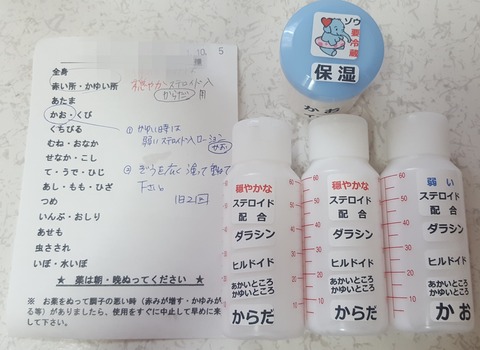 様
10. 5
全身
赤い所・かゆい所
あたま
かお・くび
くちびる
むね・おなか
せなか・こし
て・うで・ひじ
あし・もも・ひざ
つめ
いんぶ・おしり
あせも
虫さされ
いぼ・水いぼ
穏やかステロイド入
からだ 用
① かゆい時は
弱いステロイド入ローション
かお
下さい。
1日2回
★ 薬は朝・晩ぬってください ★
※ お薬をぬって調子の悪い時（赤みが増す・かゆみが
る等）がありましたら、使用をすぐに中止して早めに来
して下さい。
ゾウ
要冷蔵
保湿
かお
穏やかな
ステロイド
配合
ダラシン
ヒルドイド
あかいところ
かゆいところ
からだ
60
50
40
30
20
10
穏やかな
ステロイド
配合
ダラシン
ヒルドイド
あかいところ
かゆいところ
からだ
60
50
40
30
20
10
弱い
ステロイド
配合
ダラシン
ヒルドイド
あかいところ
かゆいところ
かお